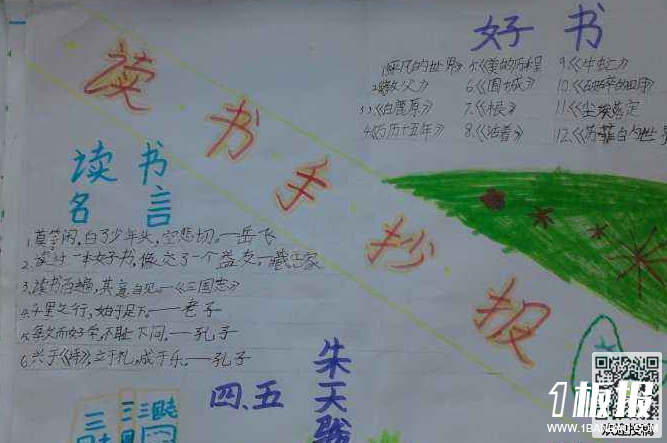 好书
1.《平凡的世界》 5.《美的历程 9.《牛虻》
2.《教父》 6.《围城》 10.《破碎的四月》
3.《白鹿原》 7.《根》 11.《尘埃落定
4.《万历十五年》 8.《活着》 12.
读书手抄报
读书
名言
1.莫等闲,白了少年头,空悲切。—岳飞
2.读过一本好书,像交了一个益友。—臧克家
3.读书百遍,其意自见。—《三国志》
4.千里之行,始于足下。——老子
5.敏而好学,不耻下问。——孔子
6.兴于《诗》,立于礼,成于乐。——孔子
四、五
朱天
三
三国志
1板报
WWW.1BANBAO.COM
欢迎投稿